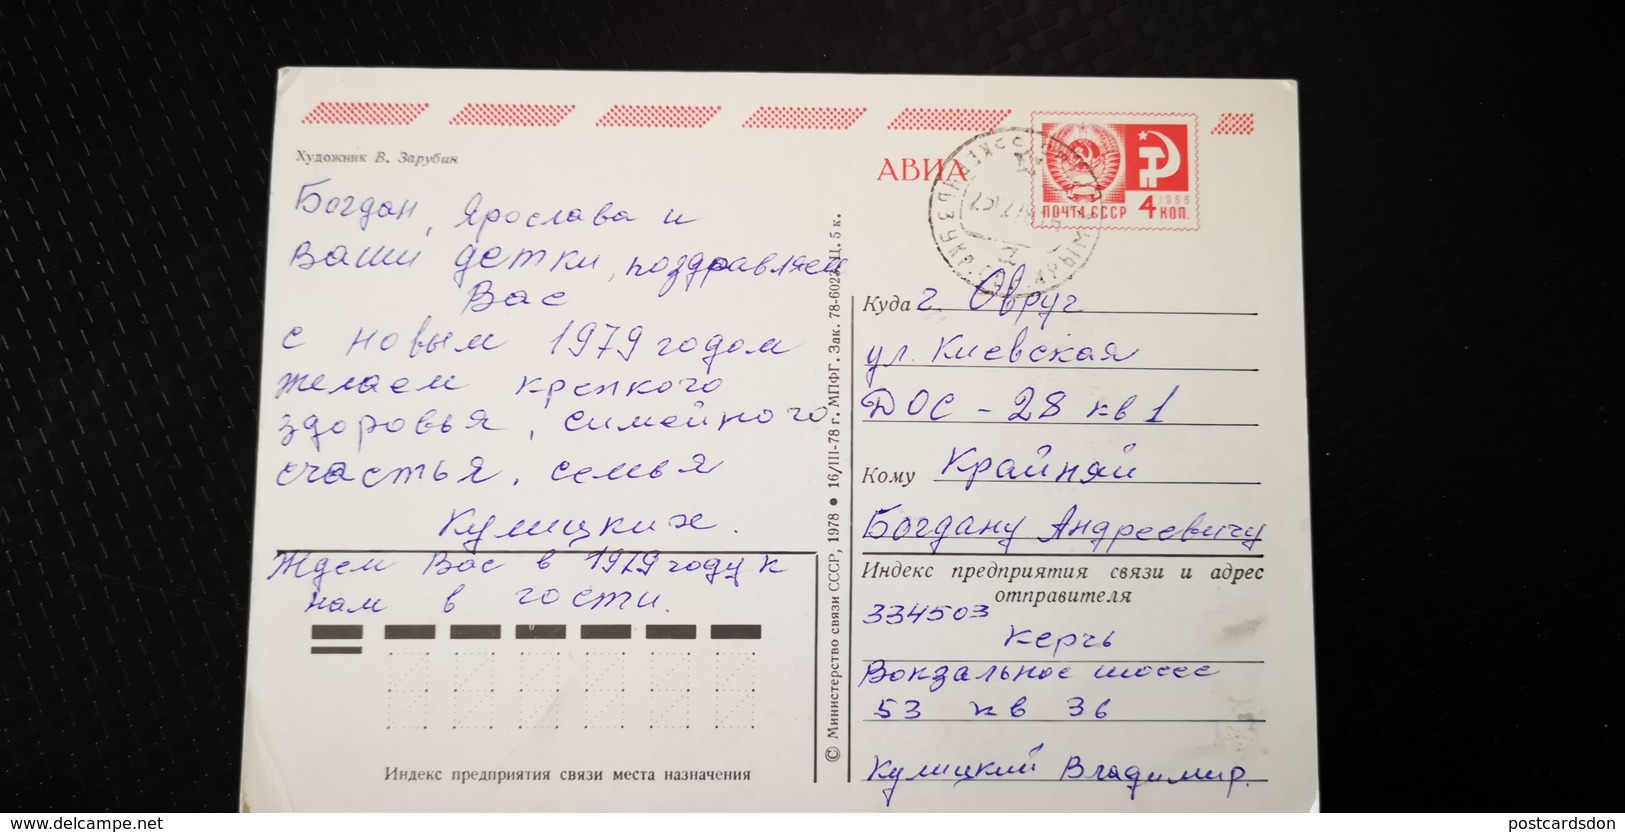 Художник В. Зарубин
АВИА
1966
ПОЧТА СССР 4 КОП.
Богдан, Ярослава и
Ваши детки, поздравляем
Вас
с новым 1979 годом
желаем крепкого
здоровья, симейного
счастья, семья
Кулицких.
Ждем Вас в 1979 году к
нам в гости.
Индекс предприятия связи места назначения
© Министерство связи СССР, 1978 • 16/III-78 г. МПФГ. Зак. 78-6022. Ц. 5 к.
Куда г. Овруч
ул. Киевская
ДОС - 28 кв 1
Кому Крайняй
Богдану Андреевичу
Индекс предприятия связи и адрес
отправителя
334503
Керчь
Вокзальное шоссе
53 кв 36
Кулицкий Владимир.
www.delcampe.net
postcardsdon